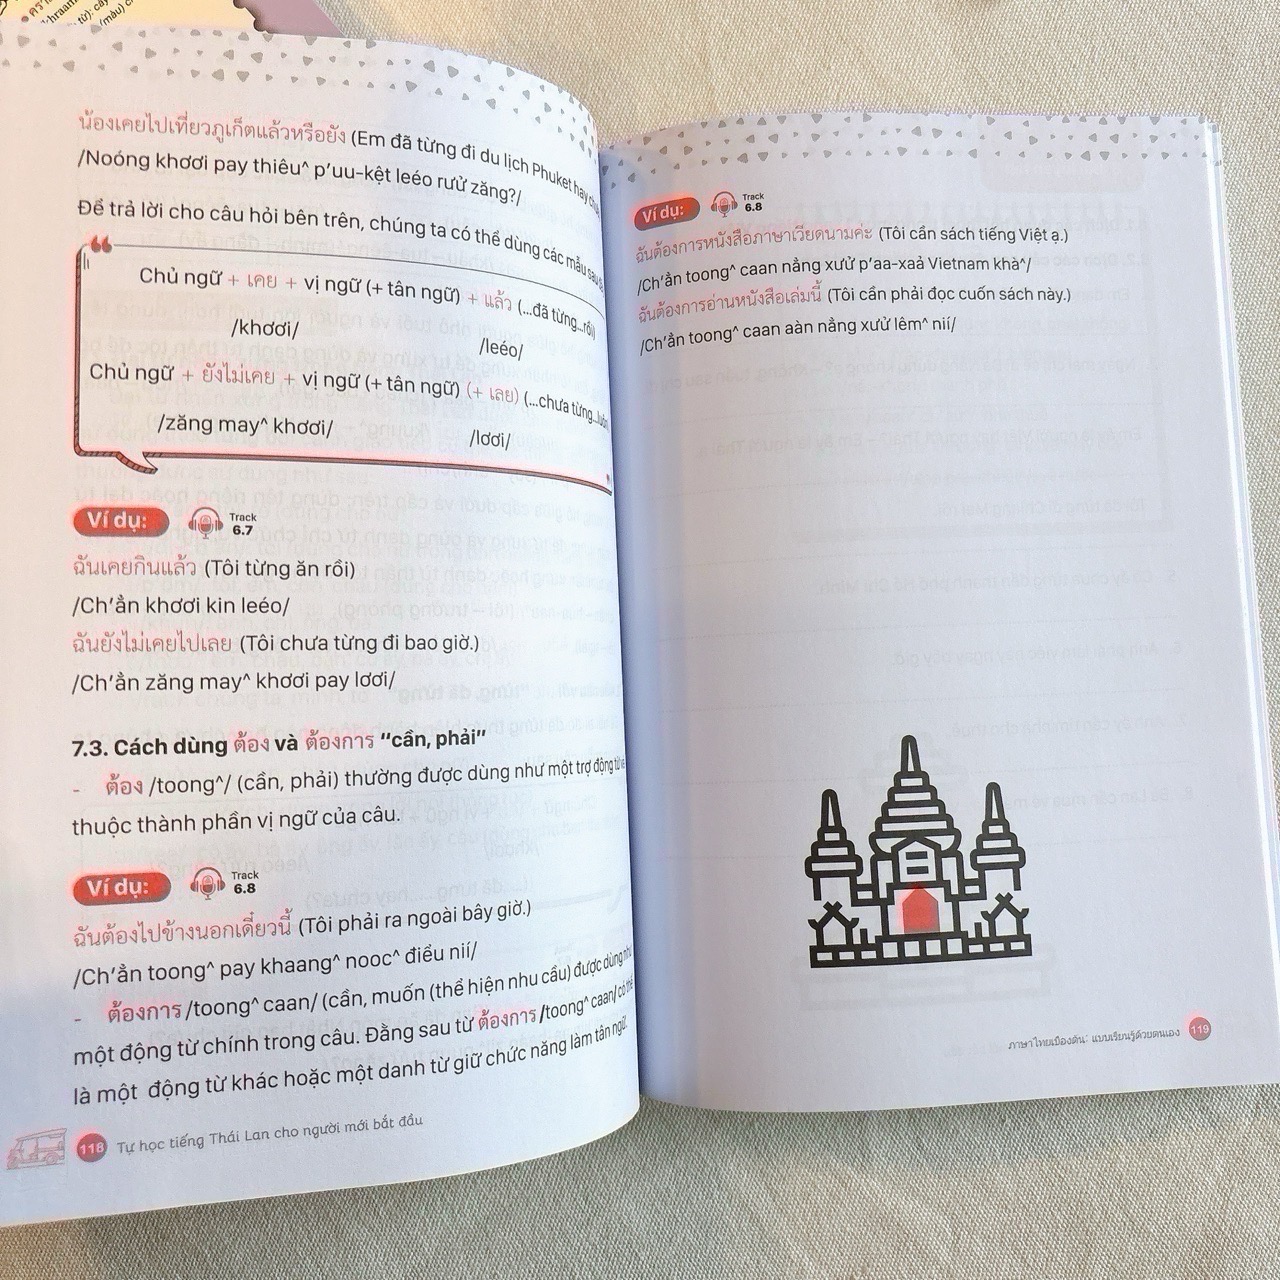 น้องเคยไปเที่ยวภูเก็ตแล้วหรือยัง (Em đã từng đi du lịch Phuket hay
/Noóng khơơi pay thiêu^ p’uu-kệt leéo rưử zăng?/
Để trả lời cho câu hỏi bên trên, chúng ta có thể dùng các mẫu sau
Chủ ngữ + เคย + vị ngữ (+ tân ngữ) + แล้ว (...đã từng...rồi)
/khơơi/ /leéo/
Chủ ngữ + ยังไม่เคย + vị ngữ (+ tân ngữ) (+ เลย) (...chưa từng...
/zăng may^ khơơi/ /lơơi/
Ví dụ: Track 6.7
ฉันเคยกินแล้ว (Tôi từng ăn rồi)
/Ch’ẳn khơơi kin leéo/
ฉันยังไม่เคยไปเลย (Tôi chưa từng đi bao giờ.)
/Ch’ẳn zăng may^ khơơi pay lơơi/
7.3. Cách dùng ต้อง và ต้องการ “cần, phải”
- ต้อง /toong^/ (cần, phải) thường được dùng như một trợ động từ
thuộc thành phần vị ngữ của câu.
Ví dụ: Track 6.8
ฉันต้องไปข้างนอกเดี๋ยวนี้ (Tôi phải ra ngoài bây giờ.)
/Ch’ẳn toong^ pay khaang^ nooc^ điểu nií/
- ต้องการ /toong^ caan/ (cần, muốn (thể hiện nhu cầu) được dùng như
một động từ chính trong câu. Đằng sau từ ต้องการ /toong^ caan/ có thể
là một động từ khác hoặc một danh từ giữ chức năng làm tân ngữ.
118 Tự học tiếng Thái Lan cho người mới bắt đầu
Ví dụ: Track 6.8
ฉันต้องการหนังสือภาษาเวียดนามค่ะ (Tôi cần sách tiếng Việt ạ.)
/Ch’ẳn toong^ caan nẳng xưử p’aa-xaả Vietnam khà^/
ฉันต้องการอ่านหนังสือเล่มนี้ (Tôi cần phải đọc cuốn sách này.)
/Ch’ẳn toong^ caan aàn nẳng xưử lêm^ nií/
ภาษาไทยเบื้องต้น: แบบเรียนรู้ด้วยตนเอง 119